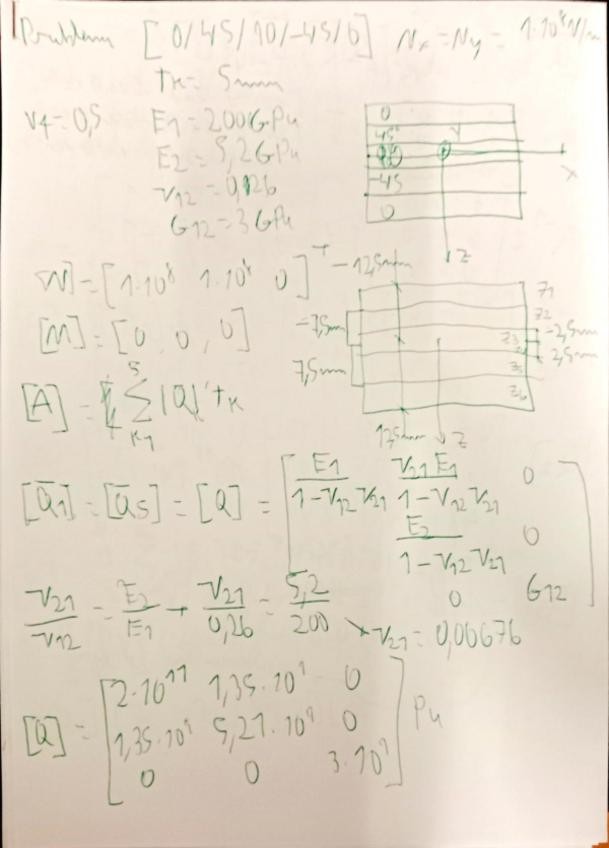 Problem [0/45/90/-45/0] Nx = Ny = 1·10⁸ N/m
tk = 5mm
Vf = 0,5 E1 = 200 GPa
E2 = 5,2 GPa
ν12 = 0,26
G12 = 3 GPa
0
45°
90
-45
0
Y
X
Z
[N] = [1·10⁸ 1·10⁸ 0]ᵀ
[M] = [0, 0, 0]
-12,5mm
-7,5mm
7,5mm
12,5mm
Z1
Z2
Z3
Z5
Z6
-2,5mm
2,5mm
Z
[A] = 5 Σ K=1 [Q] tk
[Q̄1] = [Q̄5] = [Q] = [ E1/(1-ν12 ν21) ν21 E1/(1-ν12 ν21) 0
E2/(1-ν12 ν21) 0
0 G12 ]
ν21/ν12 = E2/E1 → ν21/0,26 = 5,2/200 ↘ ν21 = 0,00676
[Q] = [ 2·10¹¹ 1,35·10⁹ 0
1,35·10⁹ 5,21·10⁹ 0
0 0 3·10⁹ ] Pa